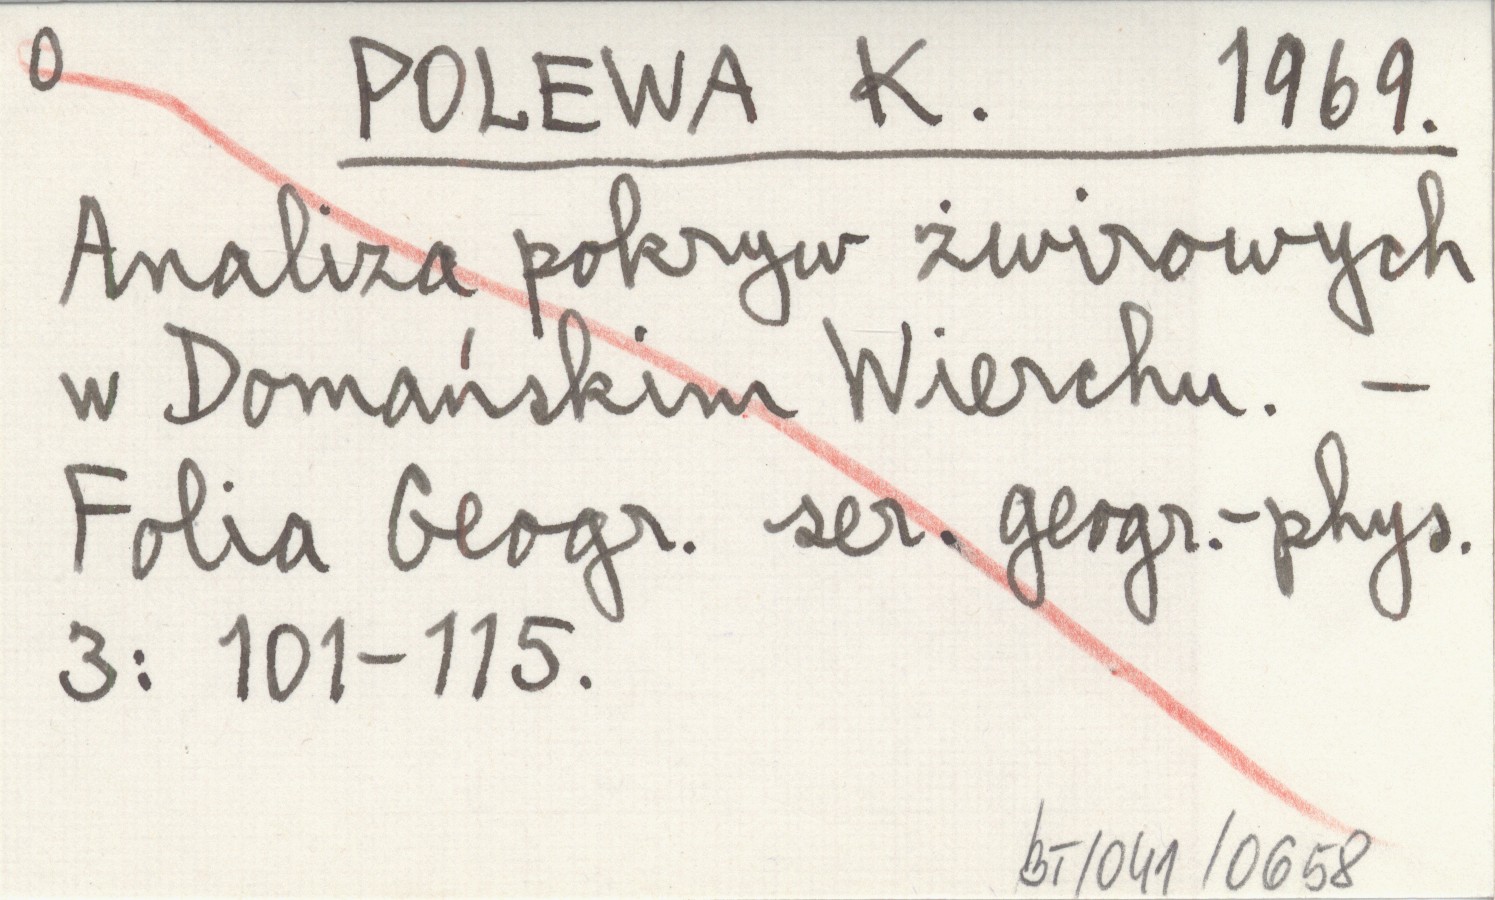 0 POLEWA K. 1969.
Analiza pokryw żwirowych
w Domańskim Wierchu. –
Folia Geogr. ser. geogr.-phys.
3: 101-115.
BT/041/0658